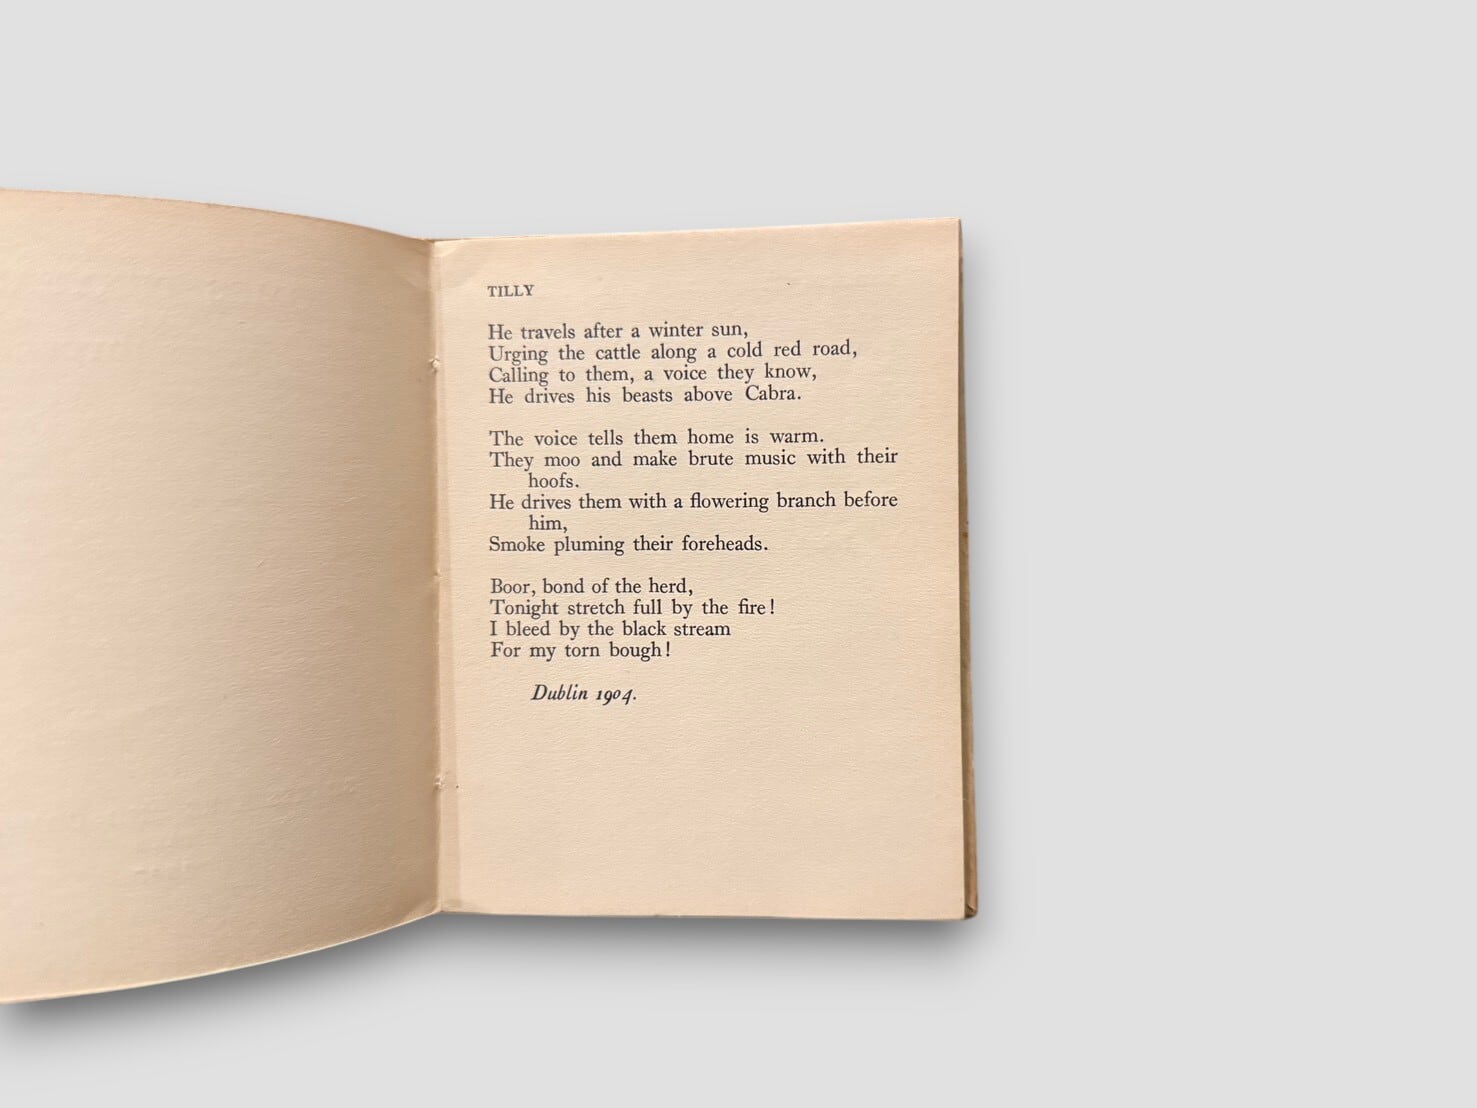 TILLY
He travels after a winter sun,
Urging the cattle along a cold red road,
Calling to them, a voice they know,
He drives his beasts above Cabra.
The voice tells them home is warm.
They moo and make brute music with their
hoofs.
He drives them with a flowering branch before
him,
Smoke pluming their foreheads.
Boor, bond of the herd,
Tonight stretch full by the fire!
I bleed by the black stream
For my torn bough!
Dublin 1904.